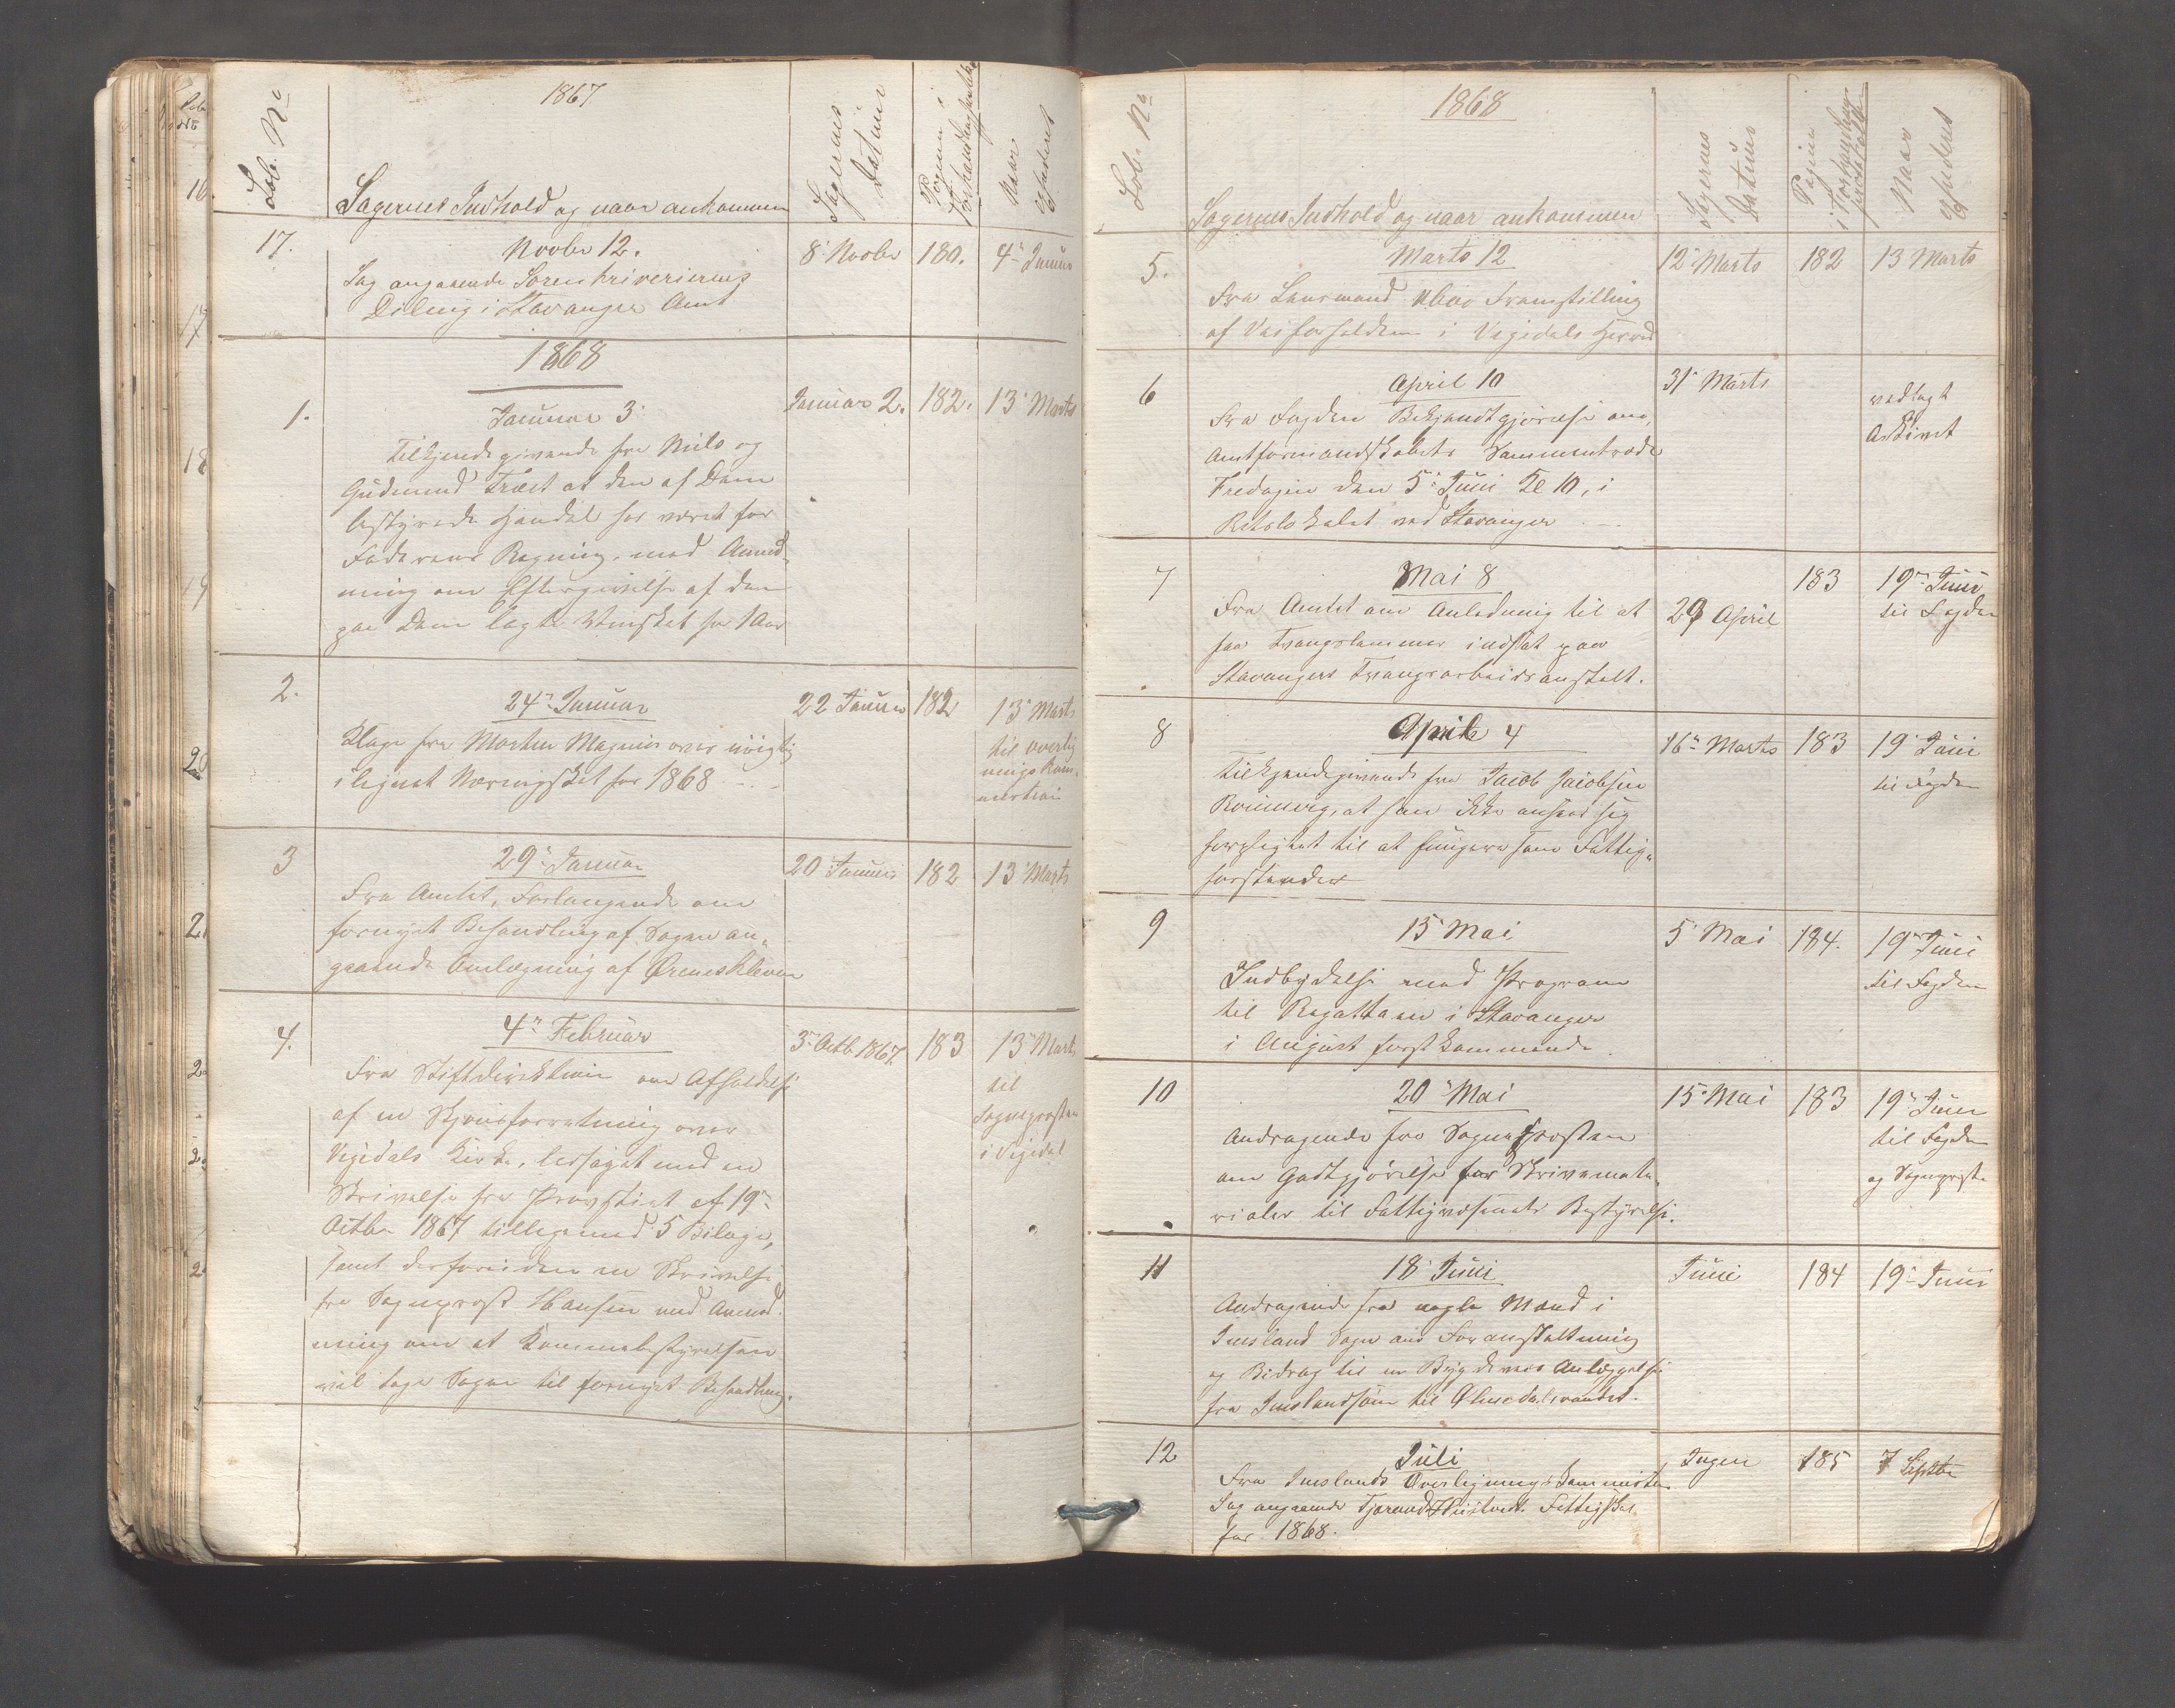 1867
Lob. No
Sagernes Indhold og naar ankommen
Sagernes Datum
Pagina i Forhandlingsprotokol
Naar Expederet
17.
Novbr 12.
8 Novbr
180.
4 Januar
Sag angaaende Sorenskriveriernes
Deling i Stavanger Amt
1868
1.
Januar 3
Januar 2.
182.
13 Marts
Tilkjendegivende fra Nils og
Gudmund Træet at den af Dem
bestyrede Handel har været for
Faderens Regning, med Anmod-
ning om Eftergivelse af den
paa Dem lagte Skat for 1 Aar
2.
24 Januar
22 Januar
182
13 Marts
til overlig
nings Kom-
mission
Klage fra Morten Magnus over urigtig
ilignet Næringsskat for 1868
3
29 Januar
20 Januar
182
13 Marts
Fra Amtet, Forlangende om
fornyet Behandling af Sagen an-
gaaende Omlægning af Ørenes Kleven
4.
4 Februar
3 Octb 1867
183
13 Marts
til
Sognepresten
i Vigedal
Fra Stiftdirektionen om Afholdelse
af en Skjønsforretning over
Vigedals Kirke, ledsaget med en
Skrivelse fra Provstiet af 19
Octbr 1867 tilligemed 5 Bilage,
samt desforuden en Skrivelse
fra Sogneprest Hansen med Anmod-
ning om at Kommunebestyrelsen
vil tage Sagen til fornyet Behandling.
1868
Lob. No
Sagernes Indhold og naar ankommen
Sagernes Datums
Pagina i Forhandlingsprotokollen
Naar Expederet
5.
Marts 12
12 Marts
182
13 Marts
Fra Lensmand Ubøe Fremstilling
af Veiforholdene i Vigedals Herred
6
April 10
31 Marts
vedlagt
Arkivet
Fra Fogden Bekjendtgjørelse om,
Amtformandskabets Sammentræde
Fredagen den 5 Juni Kl 10, i
Retslokalet ved Stavanger
7
Mai 8
29 April
183
19 Juni
til Fogden
Fra Amtet om Anledning til at
faa Tvangslemmer indsat paa
Stavangers Tvangsarbeidsanstalt.
8
April 4
16 Marts
183
19 Juni
til Fogden
Tilkjendegivende fra Jacob Jacobsen
at han ikke anseer sig
forpligtet til at fungere som Fattig-
forstander
9
15 Mai
5 Mai
184.
19 Juni
til Fogden
Indbydelse med Program
til Regattaen i Stavanger
i August førstkommende.
10
20 Mai
15 Mai
183
19 Juni
til Fogden
og Sognepresten
Andragende fra Sognepresten
om Godtgjørelse for Skrivemate-
rialer til Fattigvæsenets Bestyrelse.
11
18 Juni
Juni
184
19 Juni
Andragende fra nogle Mænd i
Imsland Sogn om Foranstaltning
og Bidrag til en Bygdeveis Anlæggelse
fra Imslandsjøen til Ølmedalsvandet.
12
Juli
Ingen
185
7 Septbr
Fra Imslands Overligningskommission
Sag angaaende Fattigskat
for 1868.